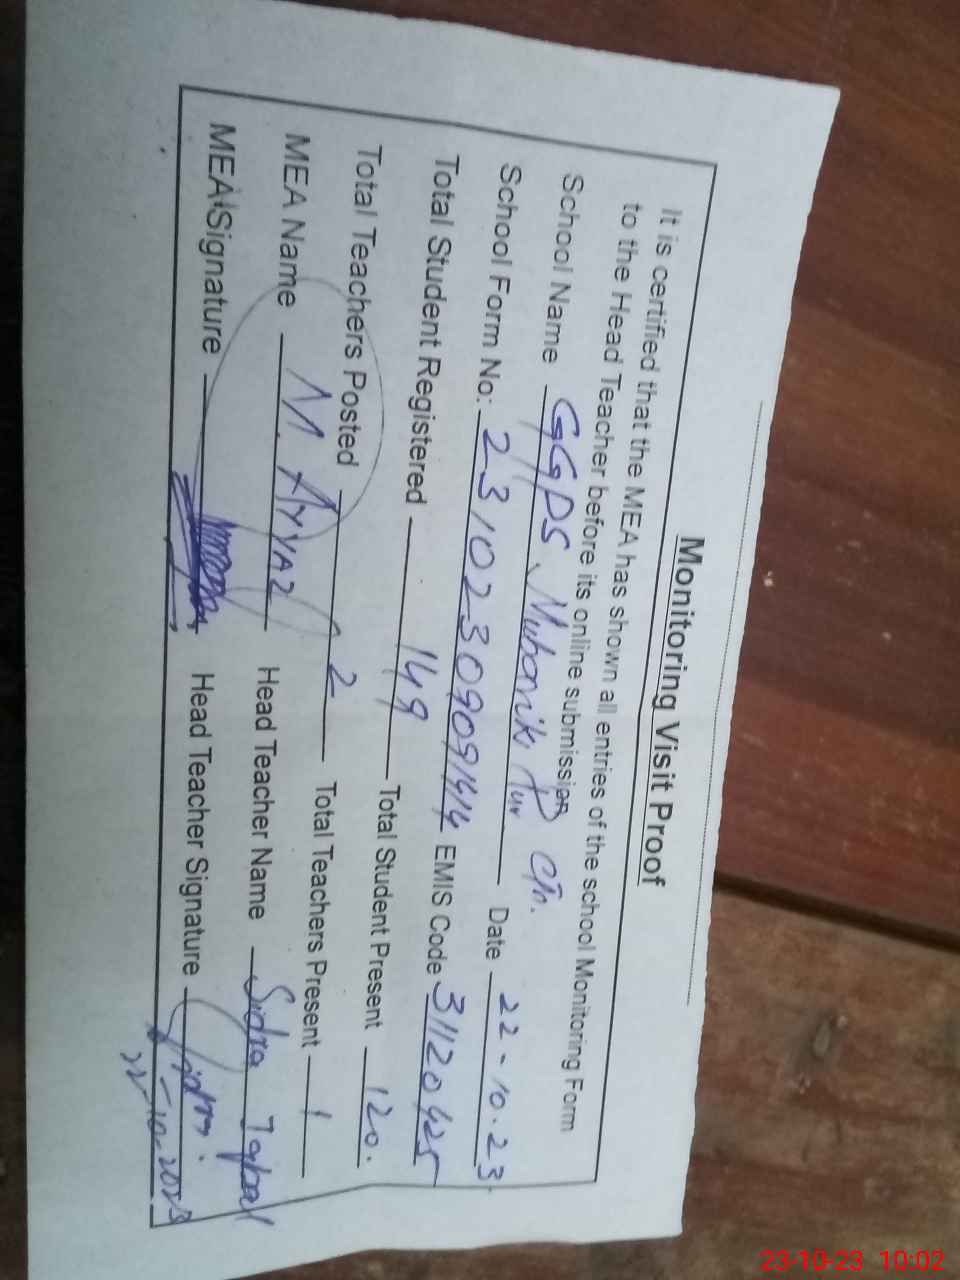 Monitoring Visit Proof
It is certified that the MEA has shown all entries of the school Monitoring Form
to the Head Teacher before its online submission
School Name GGPS Mubarik Pur Date 22-10.23.
School Form No: 23102309091414 EMIS Code 31120425
Total Student Registered 149 Total Student Present 120.
Total Teachers Posted 2 Total Teachers Present 1
MEA Name M. AYYAZ Head Teacher Name Sidra Iqbal
MEA Signature Head Teacher Signature Sidra
22-10-2023
23-10-23 10:02